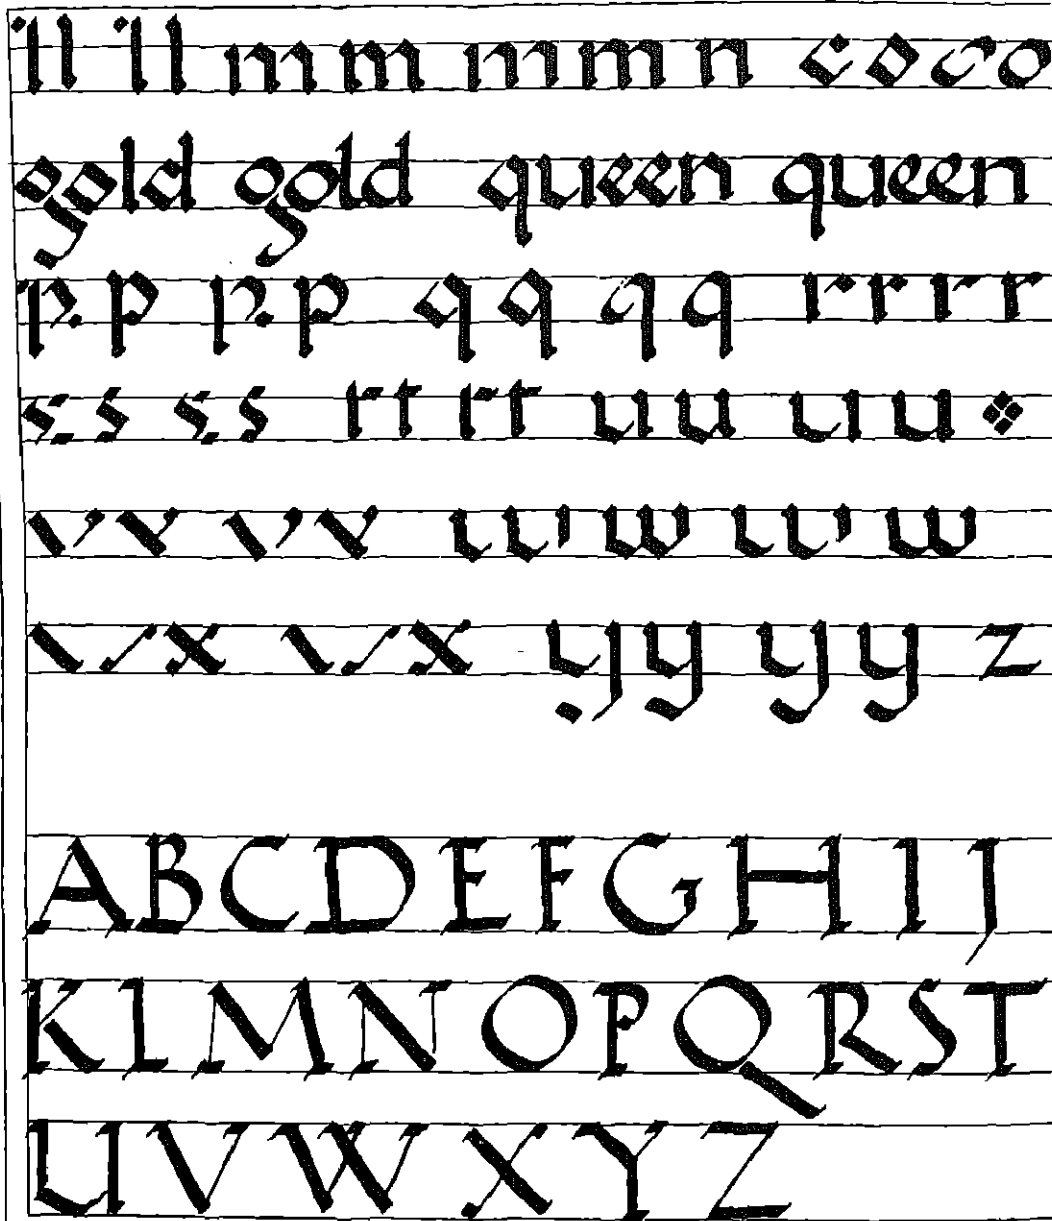 il il m m m m n c o c o
gold gold queen queen
p p p p q q q q r r r r
s s s s t t t t u u u u
v v v v w w w w
x x x x y y y y z
A B C D E F G H I J
K L M N O P Q R S T
U V W X Y Z